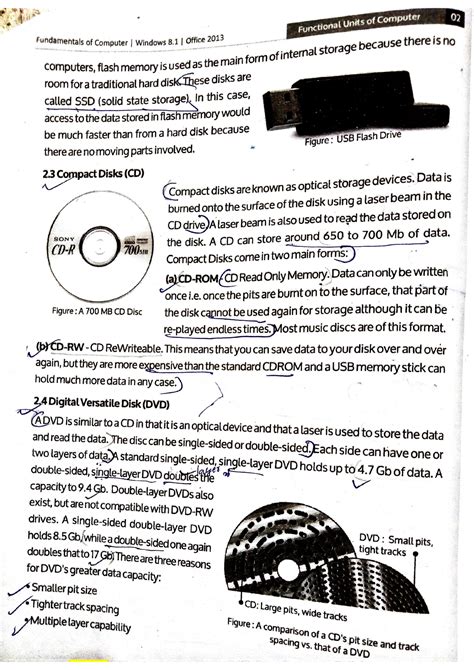 Fundamentals of Computer | Windows 8.1 | Office 2013
Functional Units of Computer
02
computers, flash memory is used as the main form of internal storage because there is no
room for a traditional hard disk. These disks are
called SSD (solid state storage). In this case,
access to the data stored in flash memory would
be much faster than from a hard disk because
there are no moving parts involved.
Figure : USB Flash Drive
2.3 Compact Disks (CD)
Compact disks are known as optical storage devices. Data is
burned onto the surface of the disk using a laser beam in the
CD drive. A laser beam is also used to read the data stored on
the disk. A CD can store around 650 to 700 Mb of data.
Compact Disks come in two main forms:
SONY
CD-R
700MB
Figure : A 700 MB CD Disc
(a) CD-ROM - CD Read Only Memory. Data can only be written
once i.e. once the pits are burnt on to the surface, that part of
the disk cannot be used again for storage although it can be
re-played endless times. Most music discs are of this format.
(b) CD-RW - CD ReWriteable. This means that you can save data to your disk over and over
again, but they are more expensive than the standard CDROM and a USB memory stick can
hold much more data in any case.
2.4 Digital Versatile Disk (DVD)
A DVD is similar to a CD in that it is an optical device and that a laser is used to store the data
and read the data. The disc can be single-sided or double-sided. Each side can have one or
two layers of data. A standard single-sided, single-layer DVD holds up to 4.7 Gb of data. A
layer
double-sided, single-layer DVD doubles the
capacity to 9.4 Gb. Double-layer DVDs also
exist, but are not compatible with DVD-RW
drives. A single-sided double-layer DVD
holds 8.5 Gb, while a double-sided one again
doubles that to 17 Gb. There are three reasons
for DVD's greater data capacity:
Smaller pit size
Tighter track spacing
Multiple layer capability
DVD : Small pits,
tight tracks
CD: Large pits, wide tracks
Figure : A comparison of a CD's pit size and track
spacing vs. that of a DVD